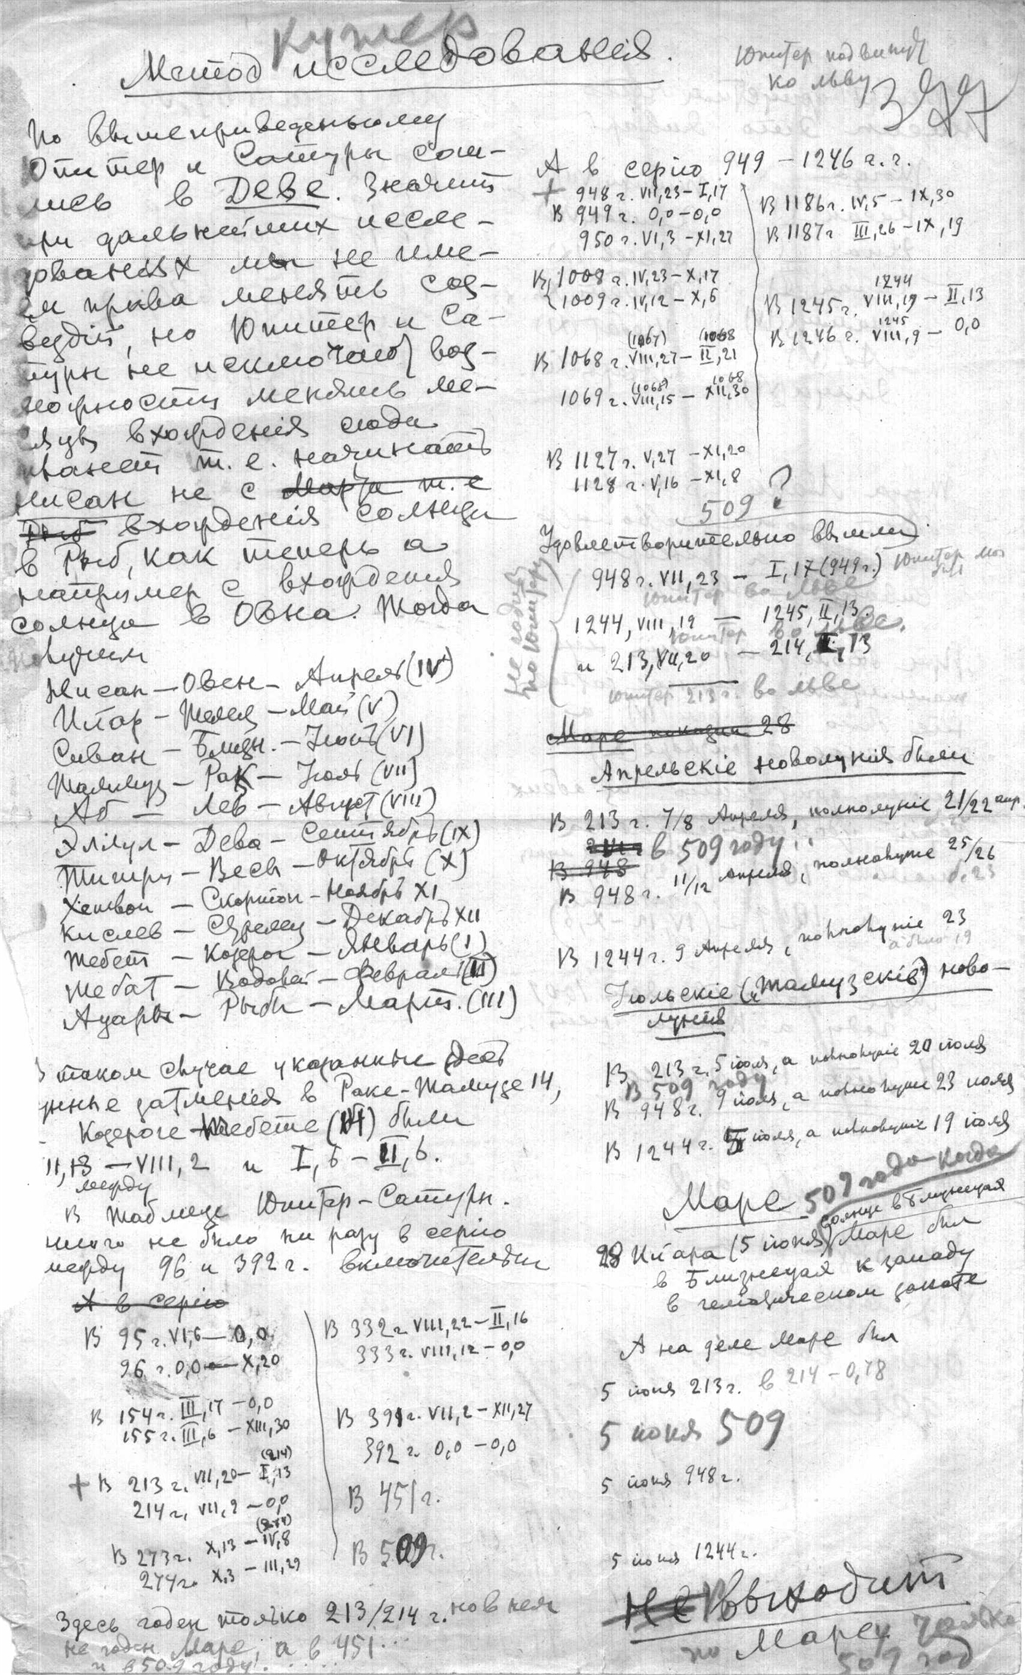 кушер
Метод исследованія.
Юпитер подвинут
ко льву
377
По вышеприведенному
Юпитер и Сатурн сош-
лись в Деве. Значит
при дальнейших иссле-
дованіях мы не име-
ем права менять соз-
вездій, но Юпитер и Са-
турн не исключают воз-
можности менять ме-
сяцы вхожденія сюда
планет т. е. начинать
Нисан не с Марта т. е
Рыб вхожденія солнца
в Рыб, как теперь а
например с вхожденія
солнца в Овна. Тогда
получим
Нисан — Овен — Апрель (IV)
Ияар — Телец — Май (V)
Сиван — Близн. — Іюнь (VI)
Таммуз — Рак — Іюль (VII)
Аб — Лев — Август (VIII)
Элул — Дева — Сентябрь (IX)
Тишри — Весы — Октябрь (X)
Хешван — Скорпіон — Ноябрь XI
Кислев — Стрелец — Декабрь XII
Тебет — Козерог — Январь (I)
Шебат — Водолей — Февраль (II)
Адары — Рыбы — Март. (III)
В таком случае указанные здесь
лунные затменія в Раке-Таммузе 14,
Козероге Тебете были
между — VIII, 2 и I, 6 — II, 6.
В таблице Юпитер-Сатурн.
этого не было ни разу в серію
между 96 и 392 г. включительно
А в серію
В 95 г. VI, 6 — 0,0
96 г. 0,0 — X, 20
В 154 г. III, 17 — 0,0
155 г. III, 6 — XIII, 30
(214)
+ В 213 г. VII, 20 — I, 13
214 г. VII, 9 — 0,0
(274)
В 273 г. X, 13 — IV, 8
274 г. X, 3 — III, 29
В 332 г. VIII, 22 — II, 16
333 г. VIII, 12 — 0,0
В 391 г. VII, 2 — XII, 27
392 г. 0,0 — 0,0
В 451 г.
В 509 г.
Здесь годен только 213/214 г. но в нем
не годен Марс, а в 451...
и в 509 году. . . . . .
А в серію 949 — 1246 г. г.
+ 948 г. VII, 23 — I, 17
В 949 г. 0,0 — 0,0
950 г. VI, 3 — XI, 27
В 1008 г. IV, 23 — X, 17
1009 г. IV, 12 — X, 6
(1067) (1068
В 1068 г. VIII, 27 — II, 21
(1068) 1068
1069 г. VIII, 15 — XII, 30
В 1127 г. V, 27 — XI, 20
1128 г. V, 16 — XI, 8
В 1186 г. IV, 5 — IX, 30
В 1187 г III, 26 — IX, 19
1244
В 1245 г. VIII, 19 — II, 13
1245
В 1246 г. VIII, 9 — 0,0
509 ?
Удовлетворительно вышли
948 г. VII, 23 — I, 17 (949 г.)
Юпитер во льве
1244, VIII, 19 — 1245, II, 13
Юпитер во льве.
и 213, VII, 20 — 214, I, 13
Юпитер 213 г. во льве
Не годится
по Юпитеру
Марс 28
Апрельскіе новолунія были
В 213 г. 7/8 Апреля, полнолуніе 21/22 апр.
в 509 году..
В 948
В 948 г. 11/12 апреля, полнолуніе 25/26
В 1244 г. 9 Апреля, полнолуніе 23
а было 19
Іюльскіе („Тамузскіе“) ново-
лунія
В 213 г. 5 іюля, а полнолуніе 20 іюля
В 509 году
В 948 г. 9 іюля, а полнолуніе 23 іюля
В 1244 г. 5 іюля, а полнолуніе 19 іюля
Марс 509 года когда
солнце в близнецах
28 Ияара (5 іюня) Марс был
в Близнецах к западу
в геліаческом закате
А на деле Марс был
5 іюня 213 г. в 214 — 0,78
5 іюня 509
5 іюня 948 г.
5 іюня 1244 г.
Не Выходит
по Марсу только
509 год